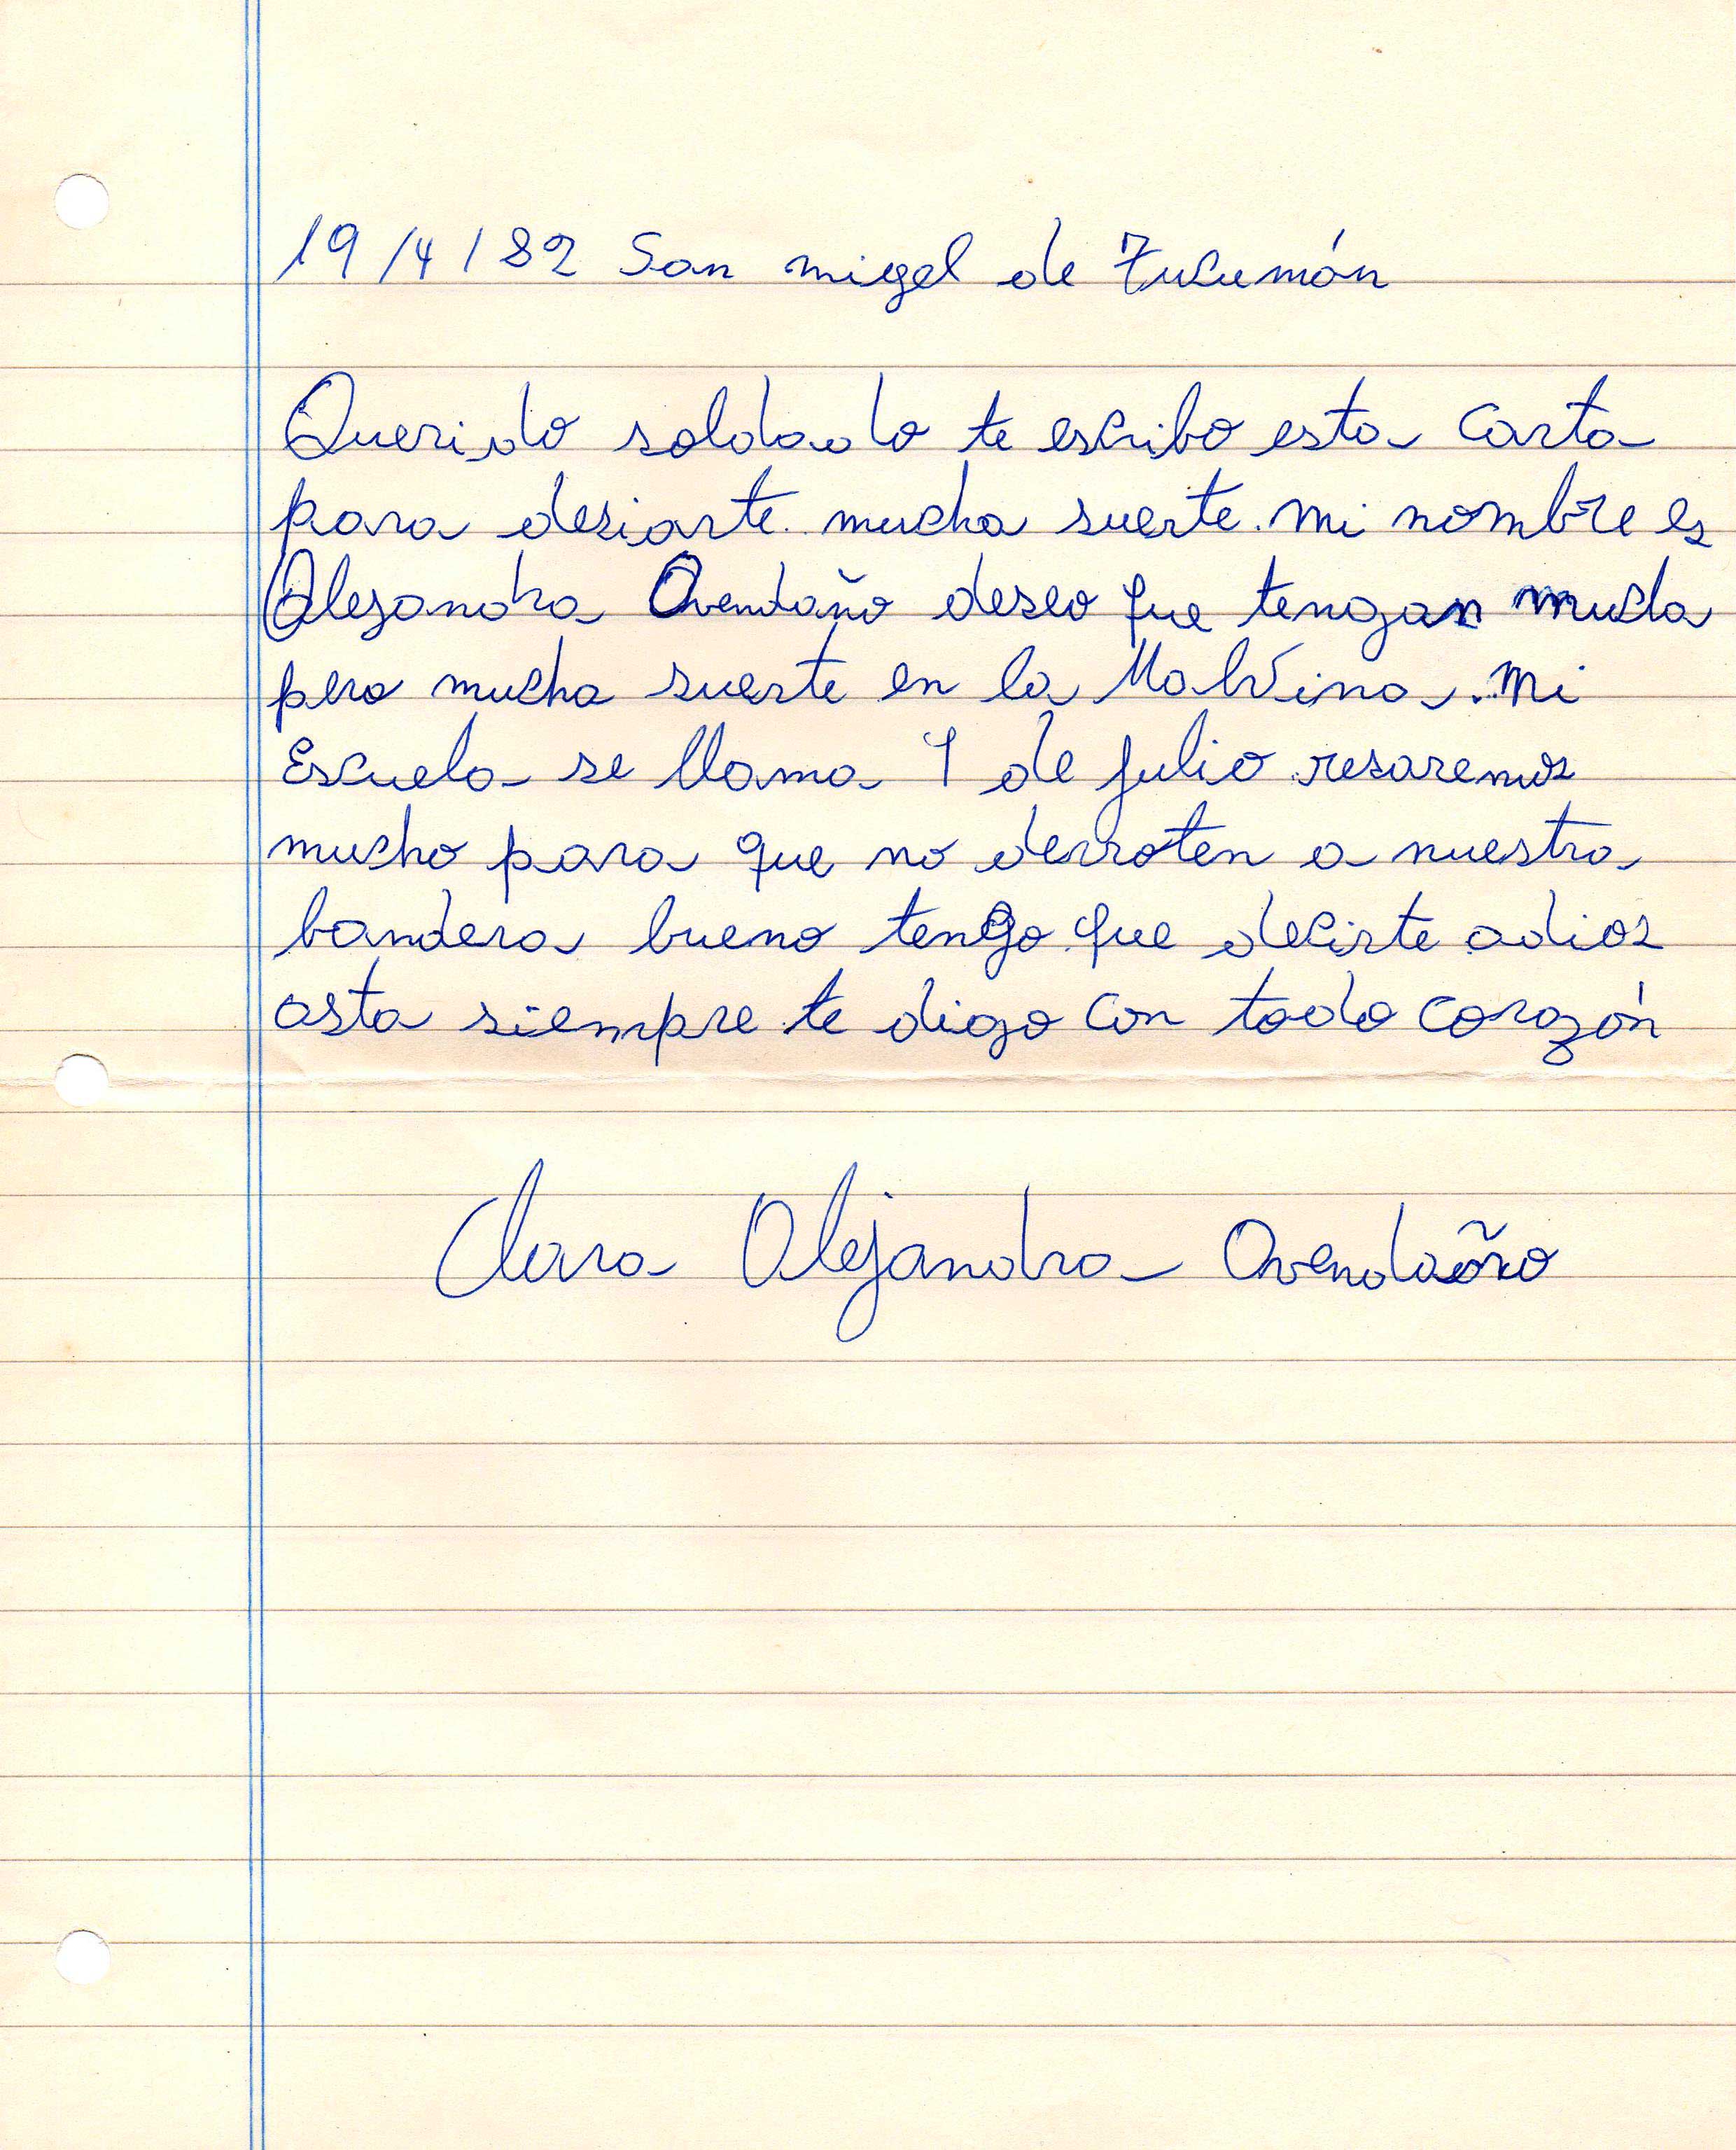 19/4/82 San migel de Tucumán
Querido soldado te escribo esta carta
para desiarte mucha suerte. mi nombre es
Alejandra Avendaño deseo que tengan mucha
pero mucha suerte en la Malvina. mi
Escuela se llama 9 de julio resaremos
mucho para que no derroten a nuestra
bandera bueno tengo que decirte adios
asta siempre te digo con todo corazón
Clara Alejandra Avendaño